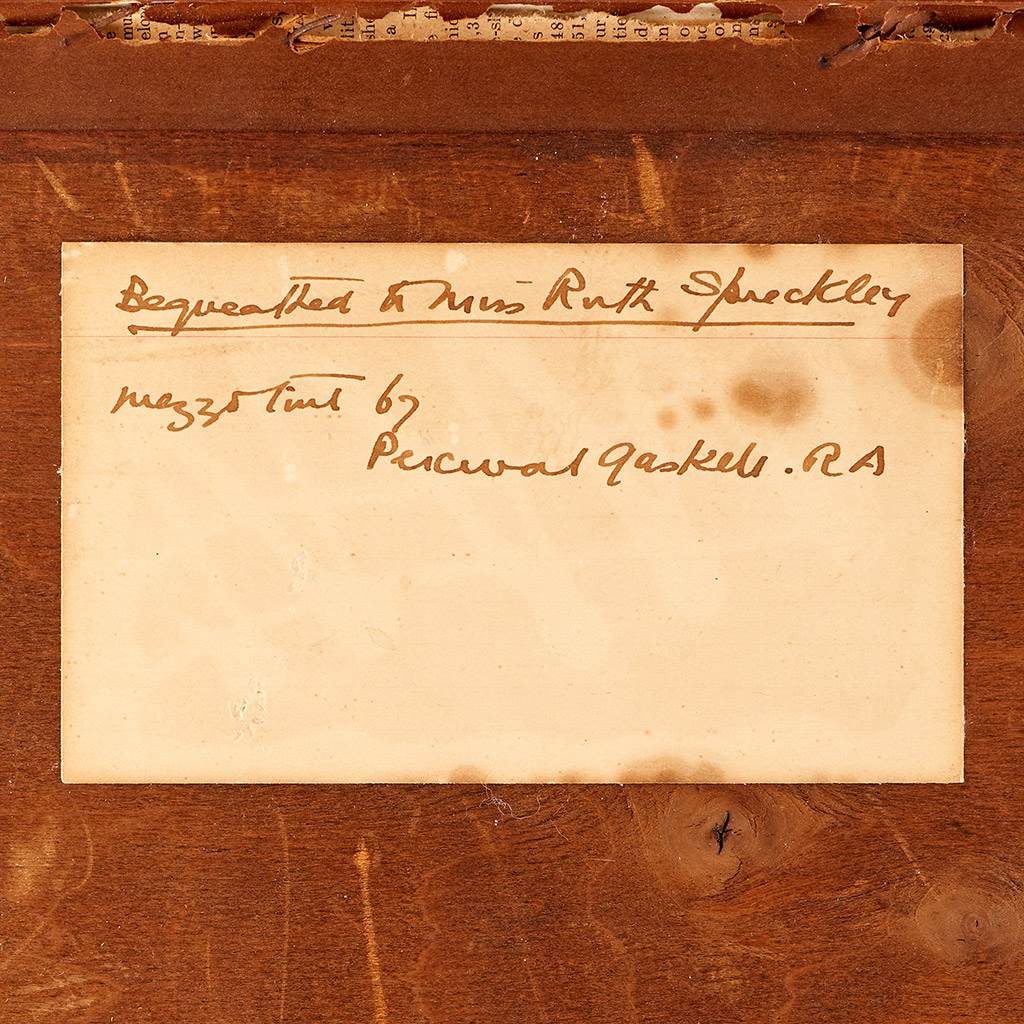 Bequeathed to Miss Ruth Spreckley
mezzotint by
Percival Gaskell. RA